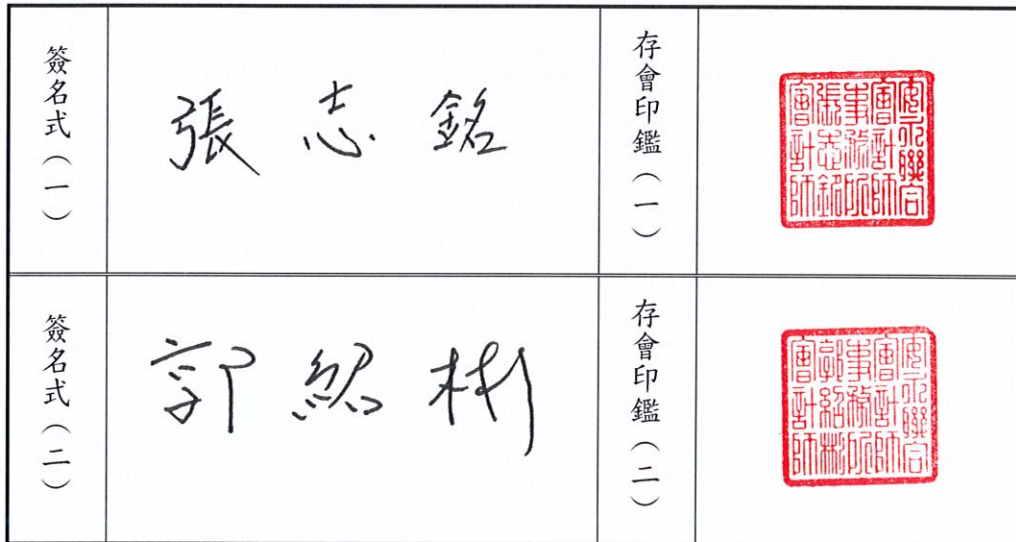 簽名式（一）
張志銘
存會印鑑（一）
安永聯合
會計師
事務所
張志銘
會計師
簽名式（二）
郭紹彬
存會印鑑（二）
安永聯合
會計師
事務所
郭紹彬
會計師